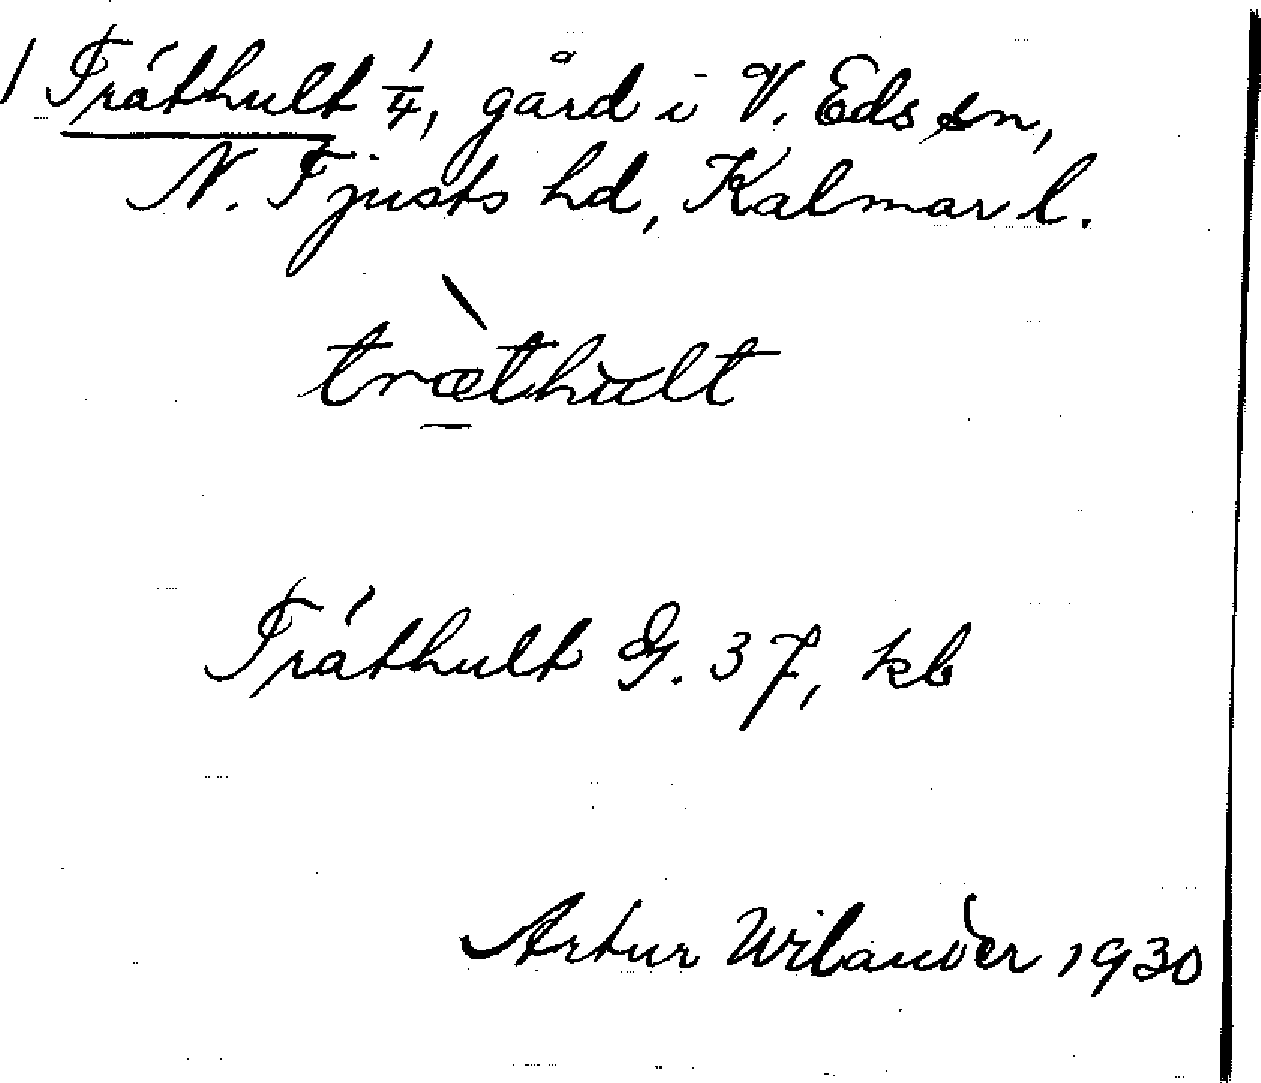 / Tráthult 1/4, gård i V. Eds sn,
N. Tjusts hd, Kalmar l.
træ̲̀thult
Tráthult G. 37, kb
Artur Wilander 1930